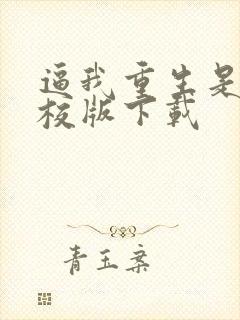 逼我重生是
校版下载
青玉案